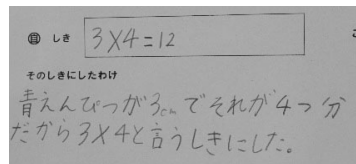 答 しき 3×4=12
そのしきにしたわけ
青えんぴつが3cmでそれが4つ分
だから3×4と言うしきにした。